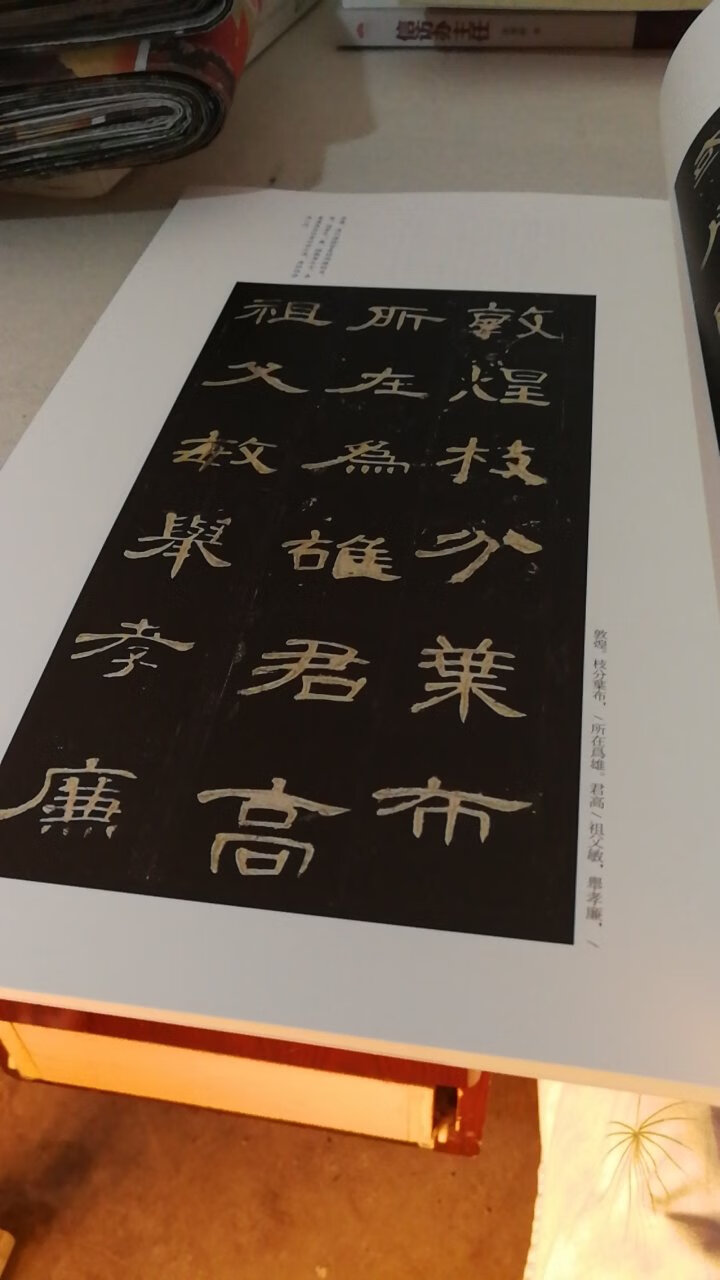 敦煌枝分葉布
所在爲雄君高
祖父敏舉孝廉
敦煌。枝分葉布，/所在爲雄。君高/祖父敏，舉孝廉，/
信访办主任